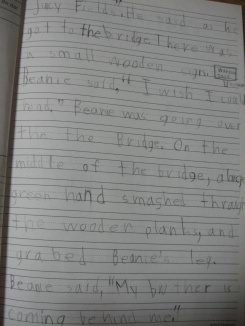 Fieldsville said as he
got to the bridge. There was
a small wooden sign.
Beanie said, "I wish I could
read." Beanie was going over
the the Bridge. On the
middle of the bridge, a large
green hand smashed throu
the wooden planks, and
grabed Beanie's leg.
Beanie said, "My brother is
coming behind me."